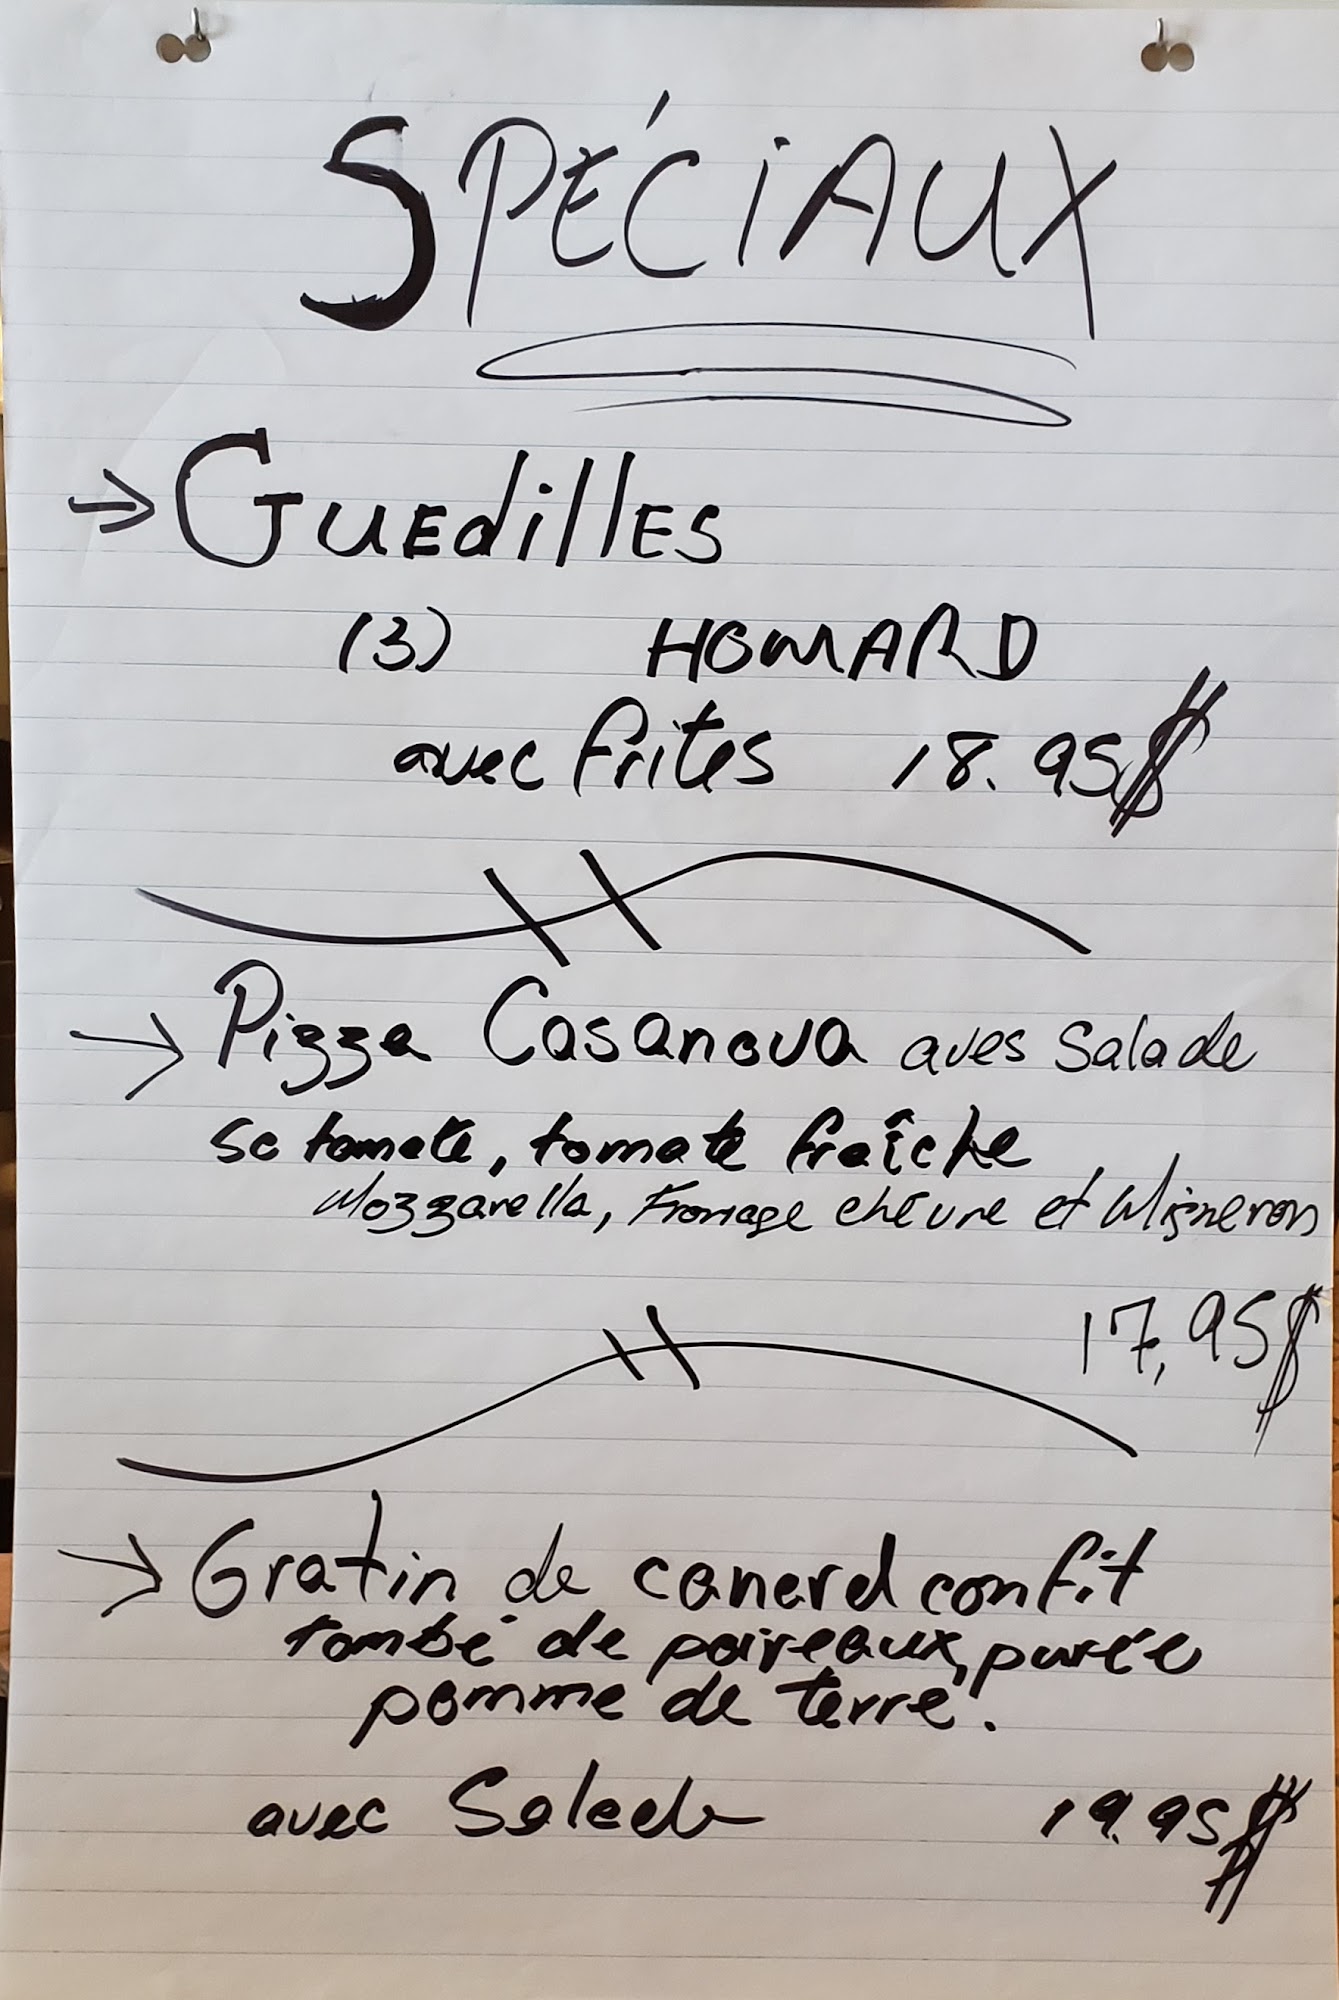 SPÉCIAUX
→ GUEdillES
(3) HOMARD
avec frites 18.95$
→ Pizza Casanova aves Salade
sc tomate, tomate fraîche
Mozzarella, Fromage chévre et Migneron
17,95$
→ Gratin de canard confit
tombé de poireaux, purée
pomme de terre.
avec Salade 19.95$